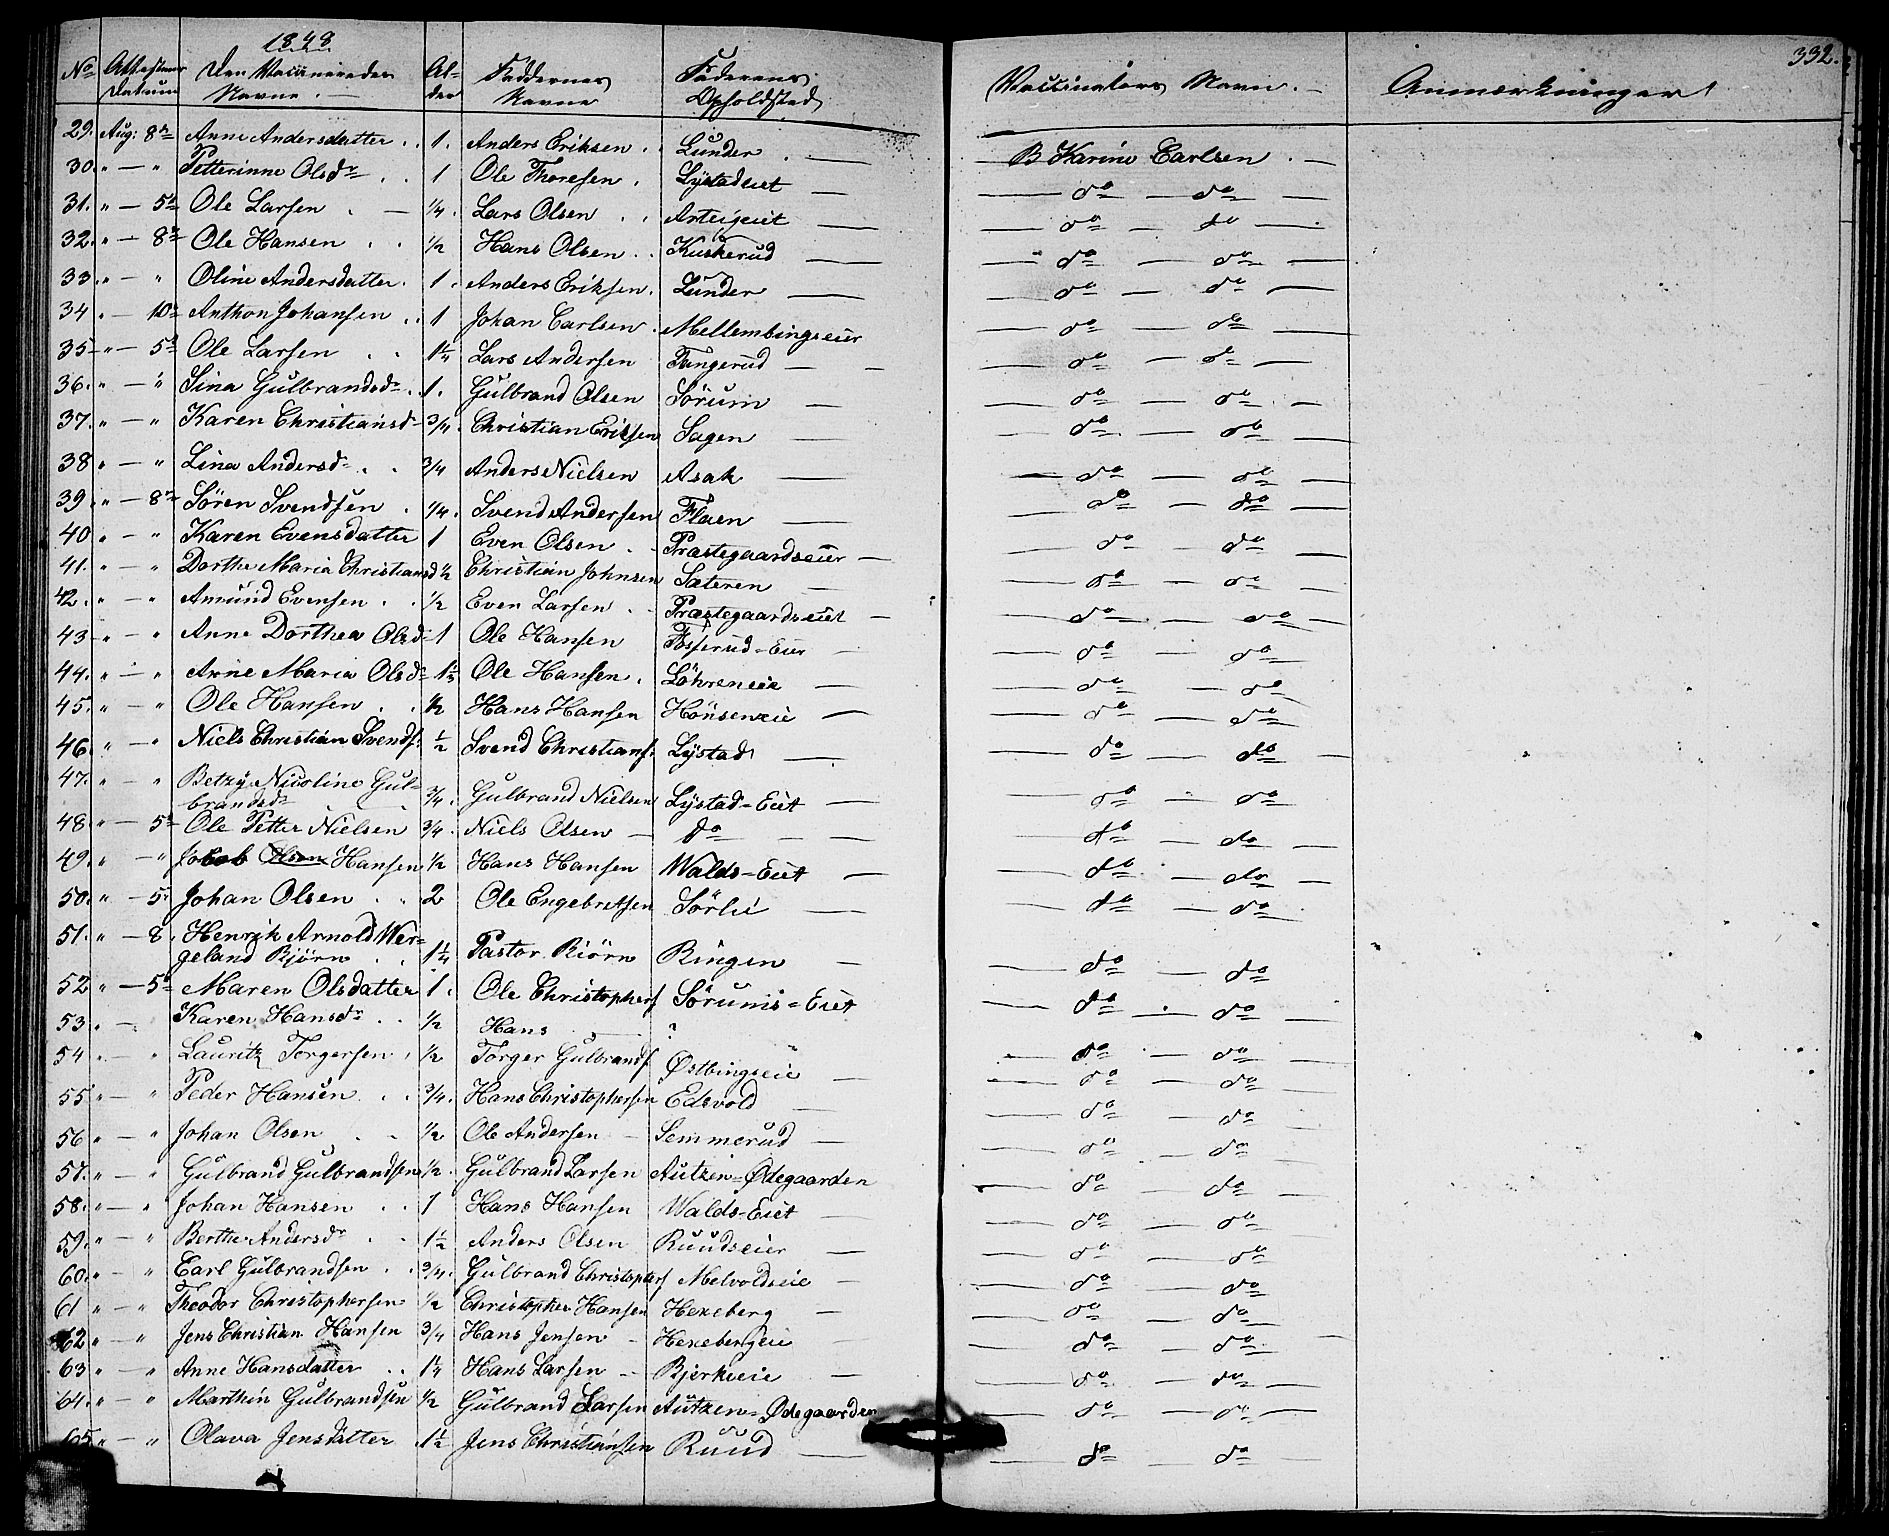 1848
332.
No Attestens Datum Den Vaccineredes Navne. Al- der Faddernes Navne Faderens Opholdsted Vaccinators Navn. Anmærkninger
29. Aug: 8de Anne Andersdatter 1. Anders Eriksen Lunder B Karine Carlsen
30. " — " Petterinne Olsdr 1 Ole Thoresen Lystadeiet — do — do
31. " — 5te Ole Larsen ¼. Lars Olsen — do — do
32. " — 8de Ole Hansen ½ Hans Olsen Kuskerud — do — do
33 " — " Oline Andersdatter 1. Anders Eriksen Lunder — do — do
34 " — 10de Anthon Johansen 1 Johan Carlsen Mellembingseier — do — do
35 " — 5te Ole Larsen 1¼ Lars Andersen Tangerud — do — do
36. " — " Sina Gulbrandsdr 1. Gulbrand Olsen Sörum — do — do
37. " — " Karen Christiansd ¾. Christian Eriksen Sagen — do — do
38 " — " Lina Andersdr ¾ Anders Nielsen Asak — do — do
39. " — 8de Sören Svendsen ¼. Svend Andersen Flaen — do — do
40 " — " Karen Evensdatter 1 Even Olsen Præstegaardseier — do — do
41. " — " Dorthe Maria Christiansd ½ Christian Johnsen Sæteren — do — do
42. " — " Amund Evensen ½ Even Larsen Præstegaardseiet — do — do
43 " — " Anne Dorthea Olsd 1 Ole Hansen Fosserud-Eier — do — do
44. " — " Anne Maria Olsdr 1½ Ole Hansen Löhreneie — do — do
45. " — " Ole Hansen ½ Hans Hansen Hönseneie — do — do
46. " — " Niels Christian Svends: ½ Svend Christians: Lystad — do — do
47. " — " Betzy Nicoline Gul-
brandsdr ¾. Gulbrand Nielsen Lystad-Eiet — do — do
48. " — 5te Ole Petter Nielsen ¾. Niels Olsen do — do — do
49. " — " Jakob Olsen Hansen ½ Hans Hansen Walds-Eiet — do — do
50. " — 5 Johan Olsen 2 Ole Engebretsen Sörlie — do — do
51. " — 8. Henrik Arnold Wer-
geland Bjørn 1¼ Pastor Biörn Ringen — do — do
52 " — 5te Maren Olsdatter 1. Ole Christophers Sörums-Eiet — do — do
53. " — Karen Hansdr ½ Hans ? — do — do
54 " — " Lauritz Torgersen ½ Torger Gulbrands Østbingseie — do — do
55 " — " Peder Hansen ¾. Hans Christophersen Edsvold — do — do
56 " — " Johan Olsen ½ Ole Andersen Semmerud — do — do
57. " — " Gulbrand Gulbrandsen ½. Gulbrand Larsen Autzen-Ødegaarden — do — do
58. " — " Johan Hansen 1 Hans Hansen Walds-Eiet — do — do
59. " — " Berthe Andersdr 1½ Anders Olsen Ruudseier — do — do
60. " — " Carl Gulbrandsen ¾. Gulbrand Christophers Melvoldseie — do — do
61 " — " Theodor Christophersen ½ Christopher Hansen Hexeberg — do — do
62 " — " Jens Christian Hansen ¾ Hans Jensen Hexebergeie — do — do
63 " — " Anne Hansdatter 1¼ Hans Larsen Bjerkeeie — do — do
64. " — " Marthin Gulbrandsen ½ Gulbrand Larsen Autzen-Ødegaarden — do — do
65 " — " Olava Jensdatter 1½ Jens Christiansen Ruud — do — do